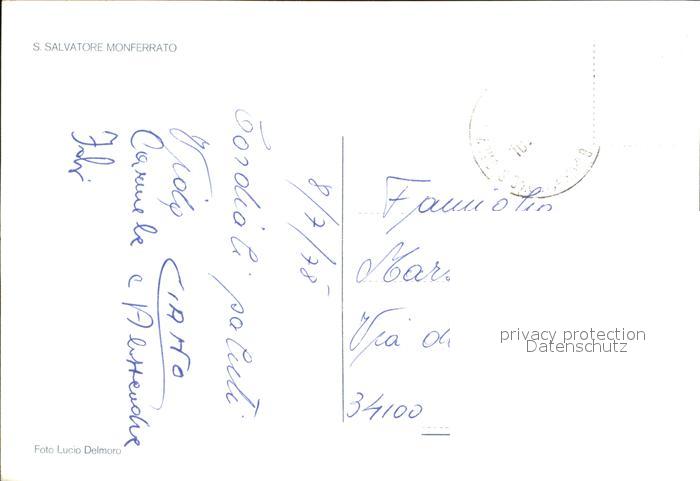 S. SALVATORE MONFERRATO
8/7/78
Cordiali saluti
Guido CIANO
Carmela e Alessandra
Famiglia
Mar
Via d
34100
privacy protection
Datenschutz
Foto Lucio Delmoro